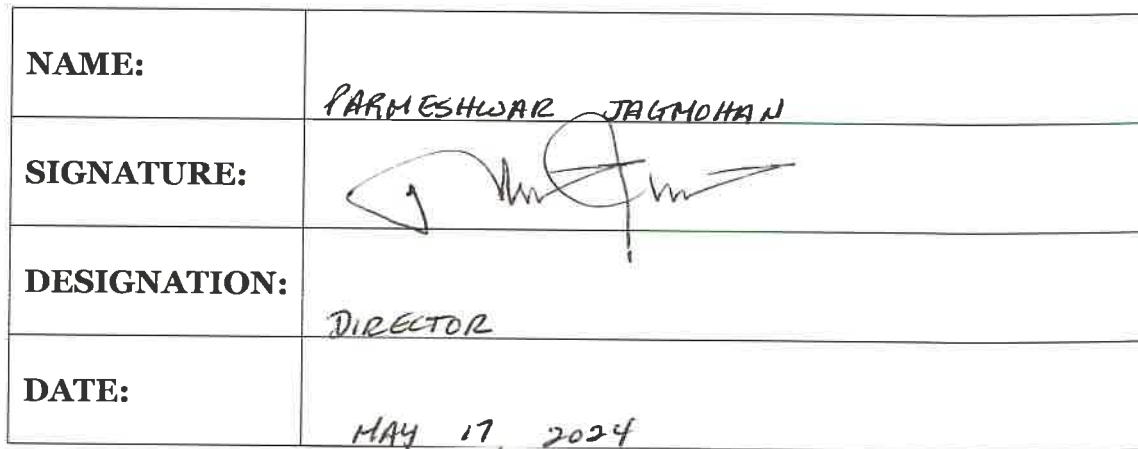 NAME:
PARMESHWAR JAGMOHAN
SIGNATURE:
DESIGNATION:
DIRECTOR
DATE:
MAY 17, 2024